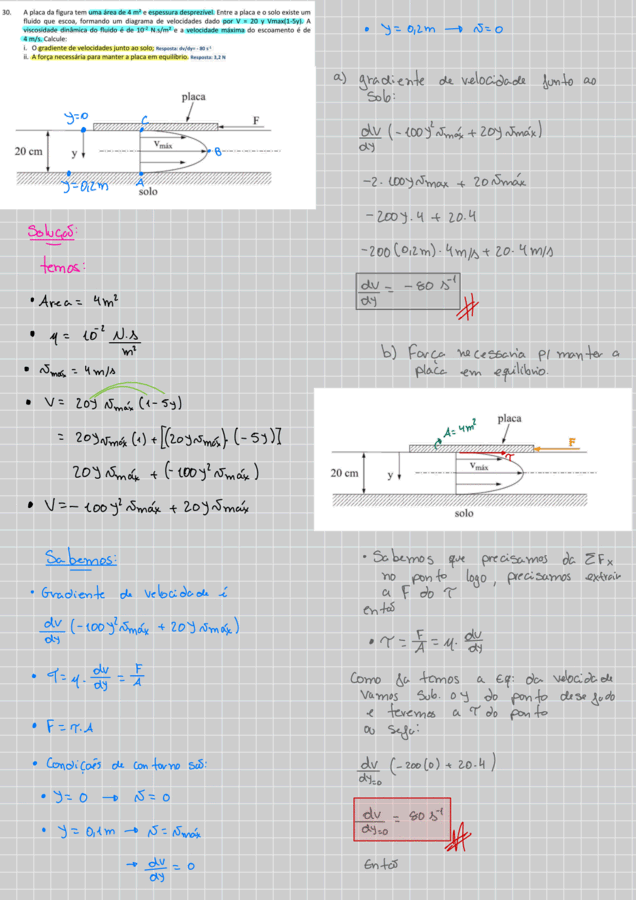 30. A placa da figura tem uma área de 4 m² e espessura desprezível. Entre a placa e o solo existe um
fluido que escoa, formando um diagrama de velocidades dado por V = 20 y Vmax(1-5y). A
viscosidade dinâmica do fluido é de 10⁻² N.s/m² e a velocidade máxima do escoamento é de
4 m/s. Calcule:
i. O gradiente de velocidades junto ao solo; Resposta: dv/dy= - 80 s⁻¹
ii. A força necessária para manter a placa em equilíbrio. Resposta: 3,2 N
placa
y=0
C
F
20 cm
y
Vmáx
B
y=0,2m
A
solo
Solução:
temos:
• Area = 4m²
• μ = 10⁻² N.s/m²
• vmáx = 4m/s
• V = 20y vmáx (1-5y)
= 20y vmáx (1) + [(20y vmáx) (-5y)]
20y vmáx + (-100y² vmáx)
• V = -100y² vmáx + 20y vmáx
Sabemos:
• Gradiente de velocidade é
dv/dy (-100y² vmáx + 20y vmáx)
• τ = μ. dv/dy = F/A
• F = τ.A
• Condições de contorno são:
• y=0 → v=0
• y=0,1m → v=vmáx
→ dv/dy = 0
• y=0,2m → v=0
a) gradiente de velocidade junto ao
solo:
dv/dy (-100y² vmáx + 20y vmáx)
-2.100y vmax + 20 vmáx
-200y.4 + 20.4
-200(0,2m).4m/s + 20.4m/s
dv/dy = -80 s⁻¹
b) Força necessaria p/ manter a
placa em equilibrio.
A=4m²
placa
τ
F
20 cm
y
Vmáx
solo
• Sabemos que precisamos da ΣFx
no ponto logo, precisamos extrair
a F do τ
então
• τ = F/A = μ. dv/dy
Como ja temos a Eq: da velocidade
vamos sub. o y do ponto desejado
e teremos a τ do ponto
ou seja:
dv/dy=0 (-200(0) + 20.4)
dv/dy=0 = 80 s⁻¹
Então